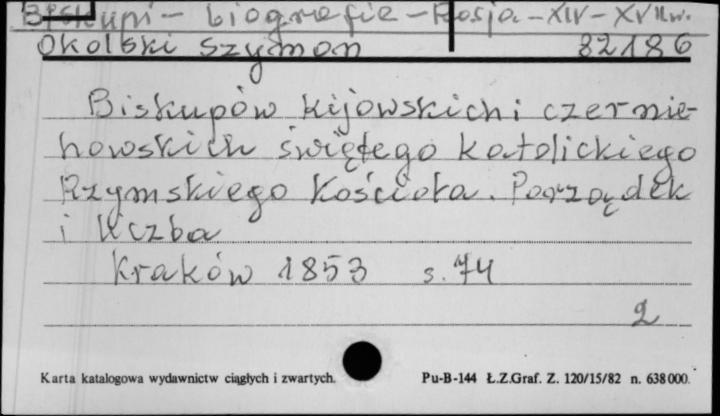 Biskupi - biografie - Rosja - XIV - XVII w.
Okolski Szymon 82186
Biskupów kijowskich i czernie-
howskich świętego katolickiego
Rzymskiego Kościoła. Porządek
i liczba
Kraków 1853 s. 74
2
Karta katalogowa wydawnictw ciągłych i zwartych.
Pu-B-144 Ł.Z.Graf. Z. 120/15/82 n. 638000.